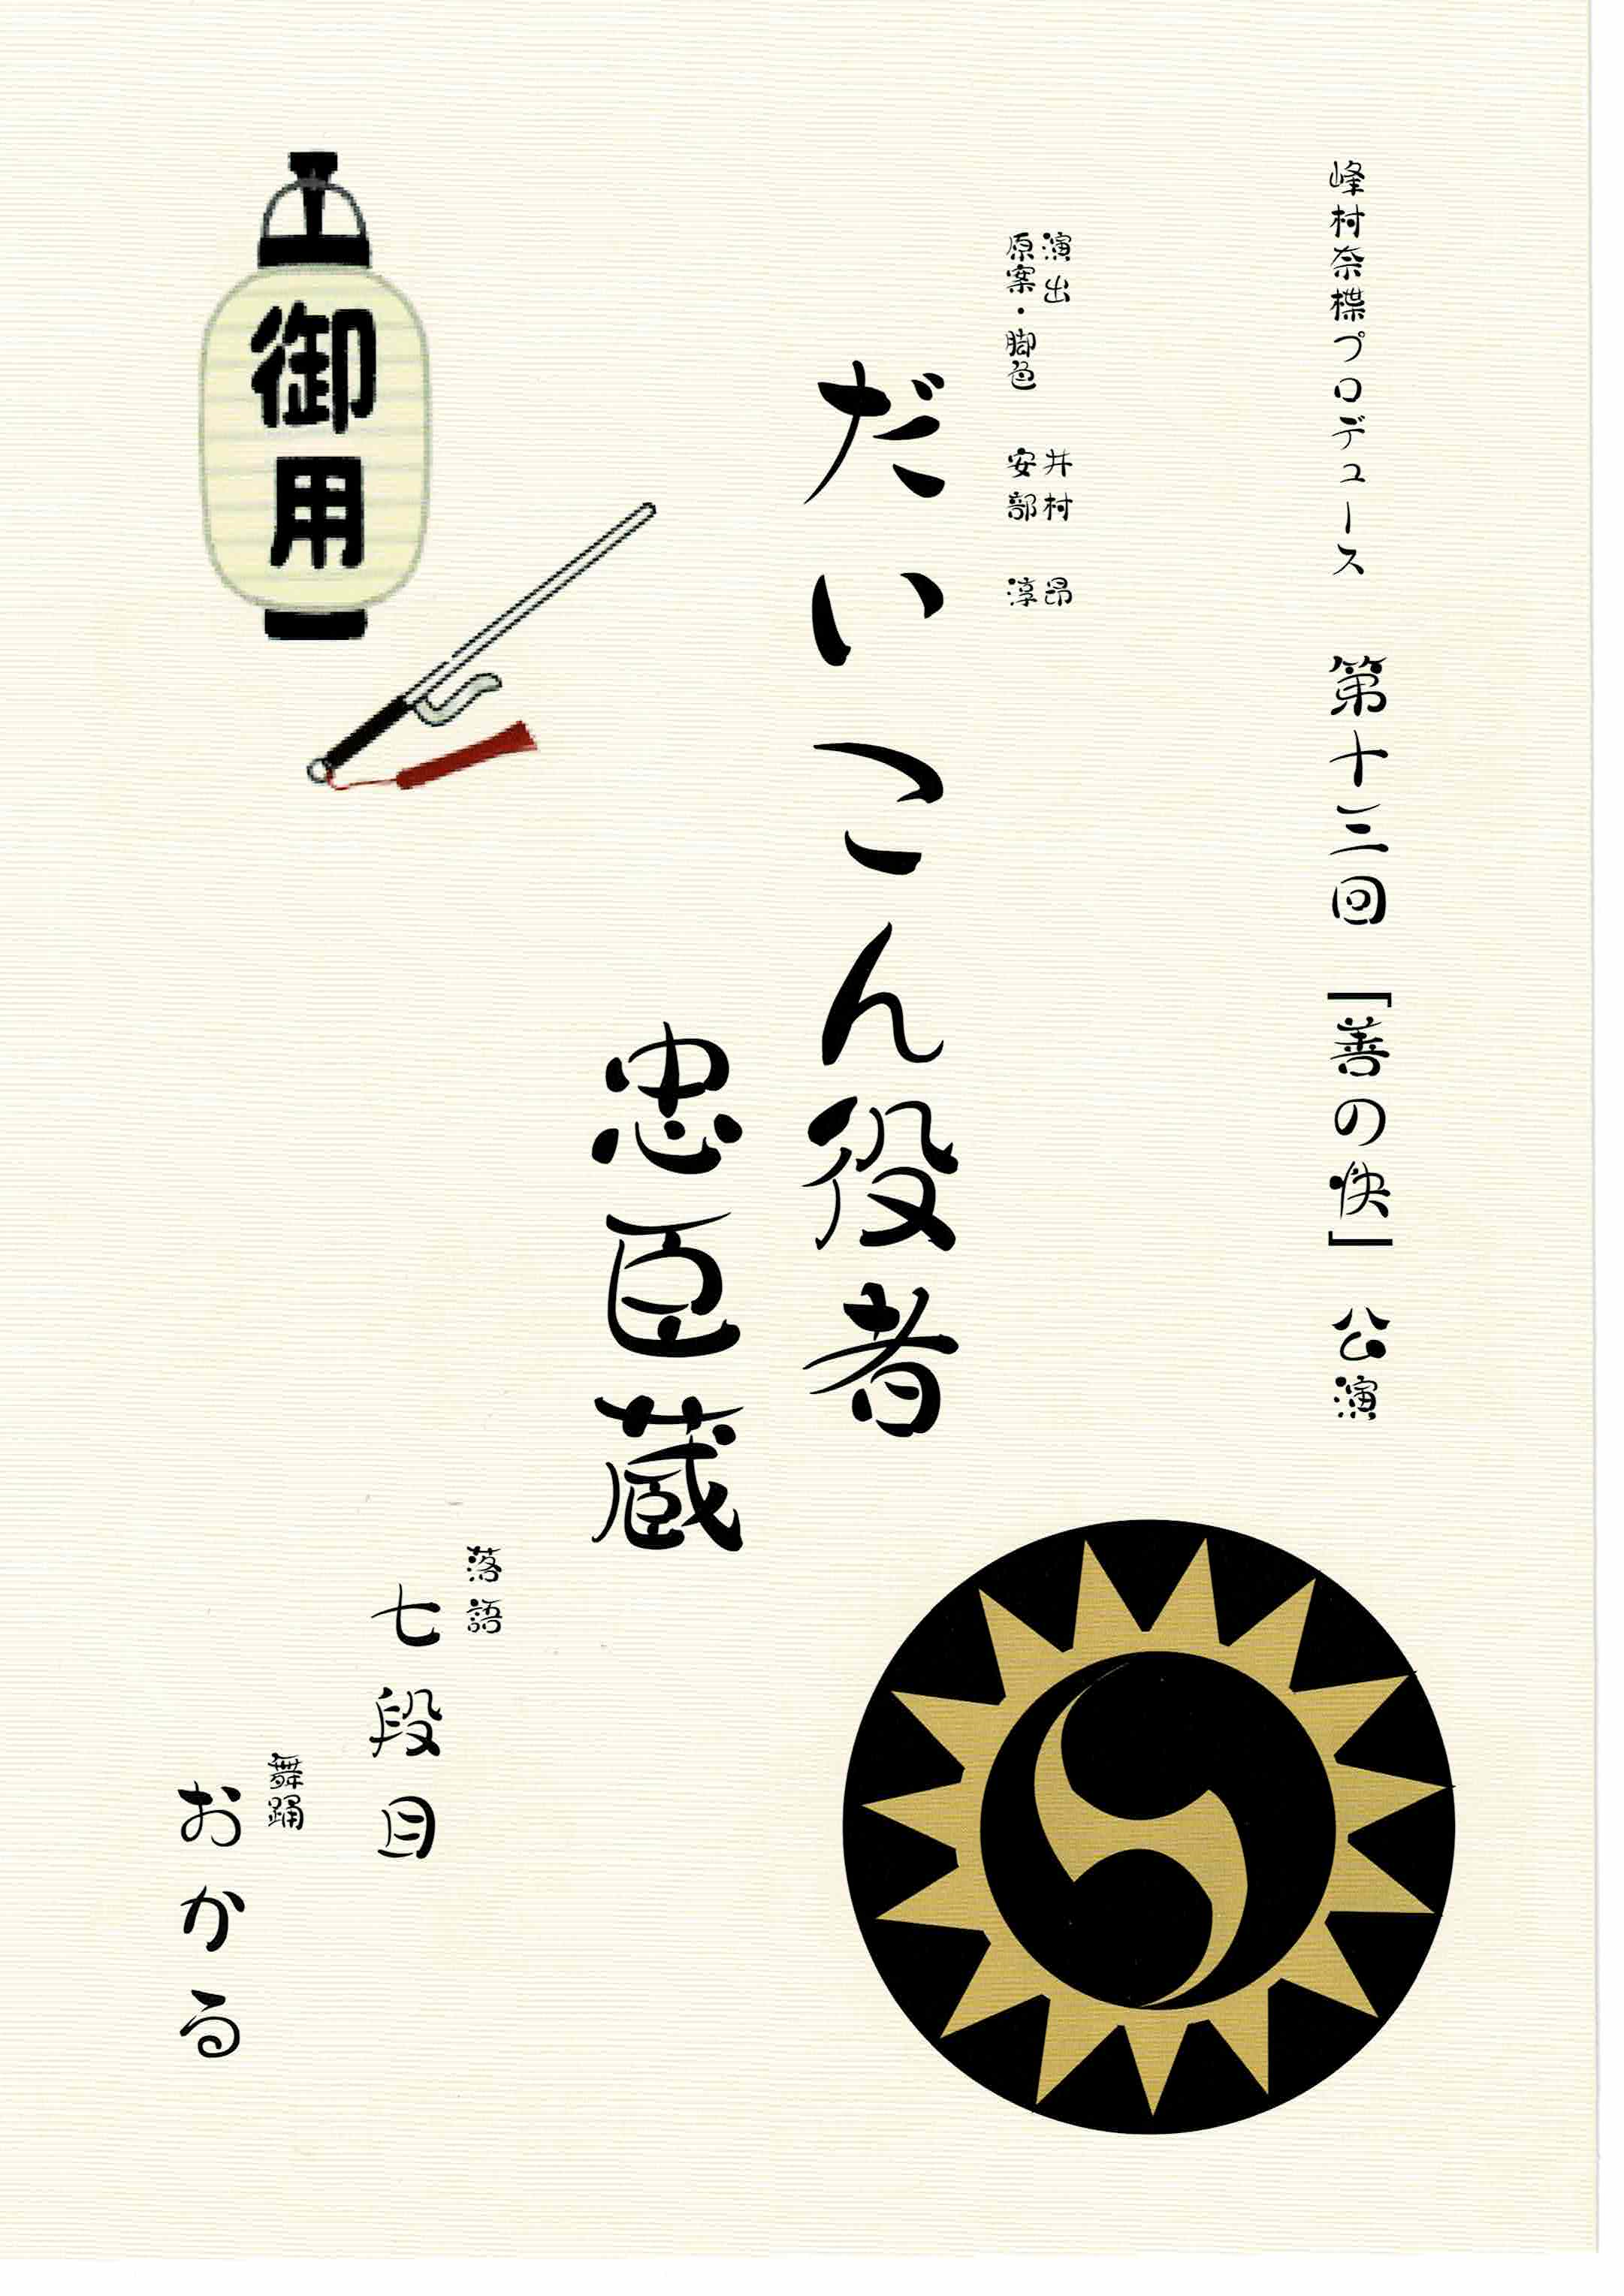 峰村奈楪プロデュース 第十三回「善の快」公演
演出 井村 昂
原案・脚色 安部 淳
だいこん役者
忠臣蔵
御用
落語
七段目
舞踊
おかる